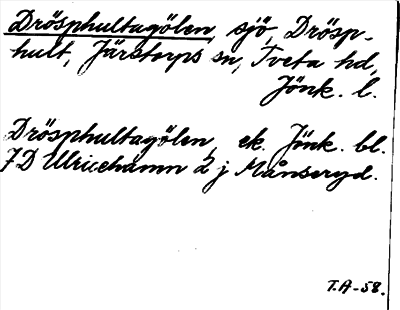 Drösphultagölen, sjö, Drösp-
hult, Järstorps sn, Tveta hd,
Jönk. l.
Drösphultagölen, ek. Jönk. bl.
7D Ulricehamn 2 j Månseryd.
T.A-58.